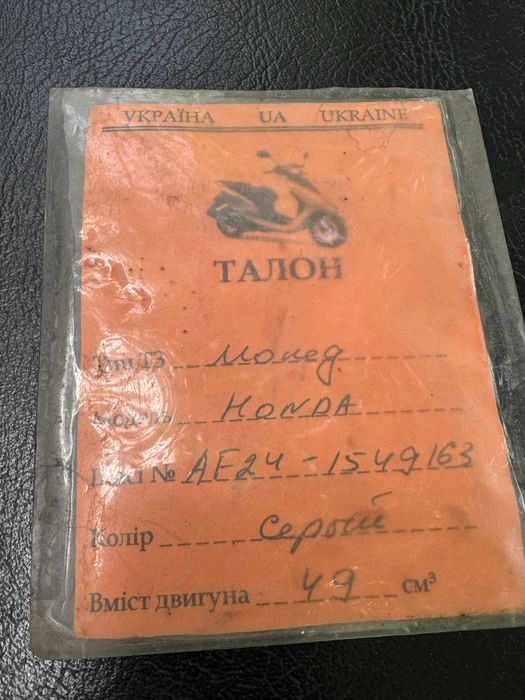 УКРАЇНА UA UKRAINE
ТАЛОН
Тип ТЗ Мопед
Модель HONDA
№ AF24-1549163
Колір Серый
Вміст двигуна 49 см³